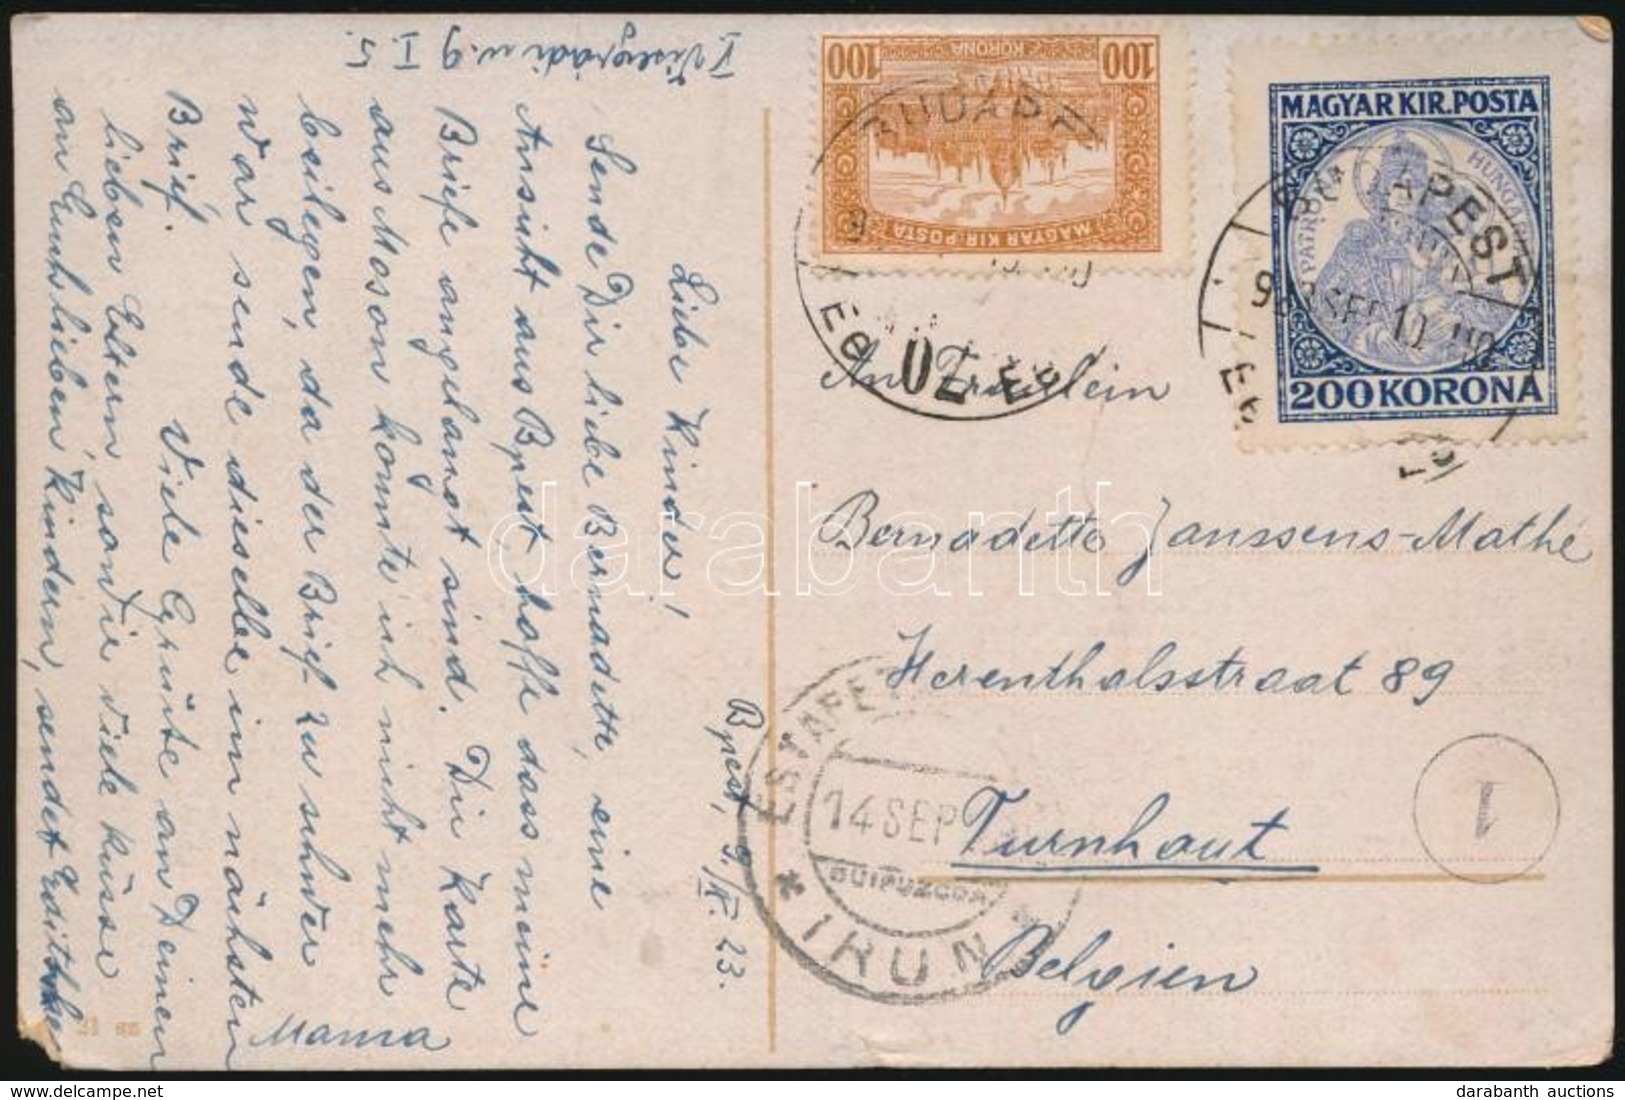 I. Visegrádi u. 9 I. 5.
Bpest, 9./IX. 23.
Liebe Kinder!
Sende Dir liebe Bernadette, eine
Ansicht aus Bpest, hoffe dass meine
Briefe angelangt sind. Die Karte
aus Moson konnte ich nicht mehr
beilegen, da der Brief zu schwer
war sende dieselbe im nächsten
Brief.
Viele Grüsse an Deinen
lieben Eltern, sowie viele Küsse
an Euch lieben Kindern, sendet Edith
Mama
100 100
KORONA
MAGYAR KIR. POSTA
BUDAPE
MAGYAR KIR. POSTA
PATRONA HUNGARIAE
200 KORONA
BUDAPEST
923 SEP 10
An Fräulein
Bernadette Janssens-Mathé
Herenthalsstraat 89
Turnhout
Belgien
ESTAFE
14 SEP
IRUN
1
darabanth
darabanth auctions